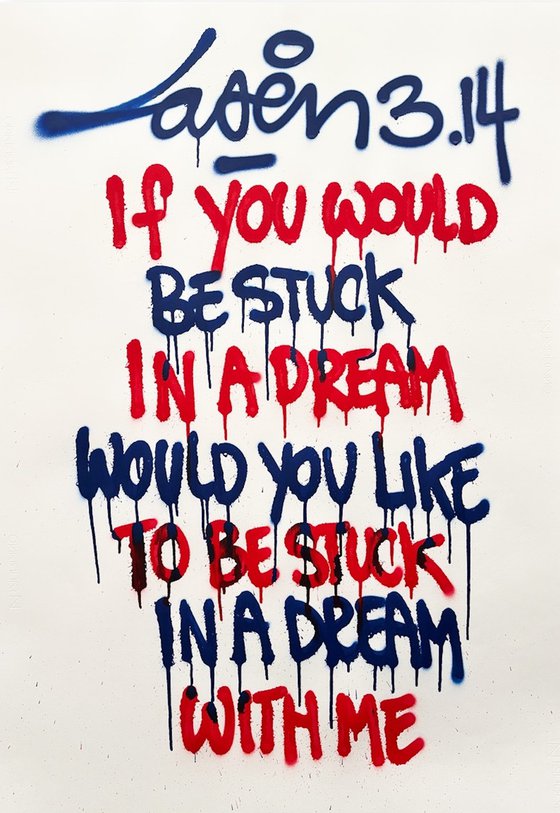 Laser 3.14
If YOU WOULD
BE STUCK
IN A DREAM
WOULD YOU LIKE
TO BE STUCK
IN A DREAM
WITH ME